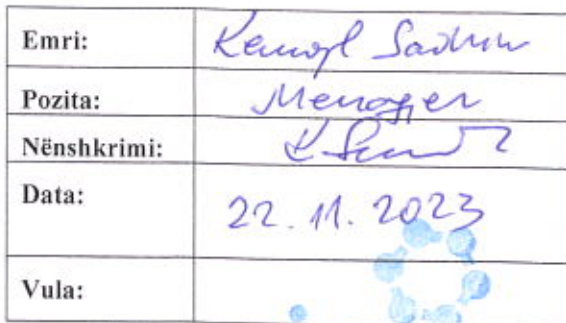 Emri: Kemajl Sadriu
Pozita: Menager
Nënshkrimi:
Data: 22.11.2023
Vula: